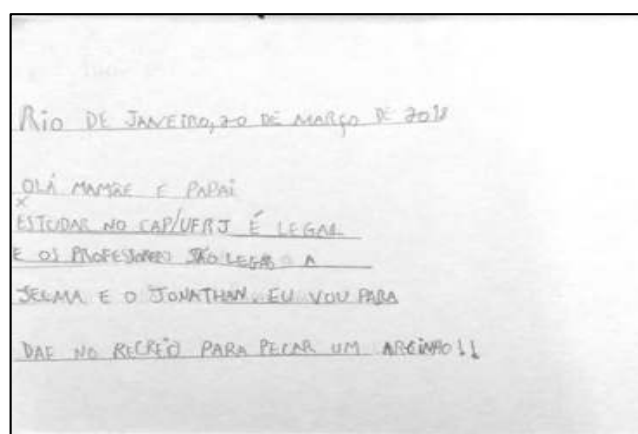 RIO DE JANEIRO, 20 DE MARÇO DE 2018
OLÁ MAMÃE E PAPAI
X
ESTUDAR NO CAP/UFRJ É LEGAL
E OS PROFESSORES SÃO LEGAS A
SELMA E O JONATHAN. EU VOU PARA
DAE NO RECREIO PARA PEGAR UM ARGINHO!!